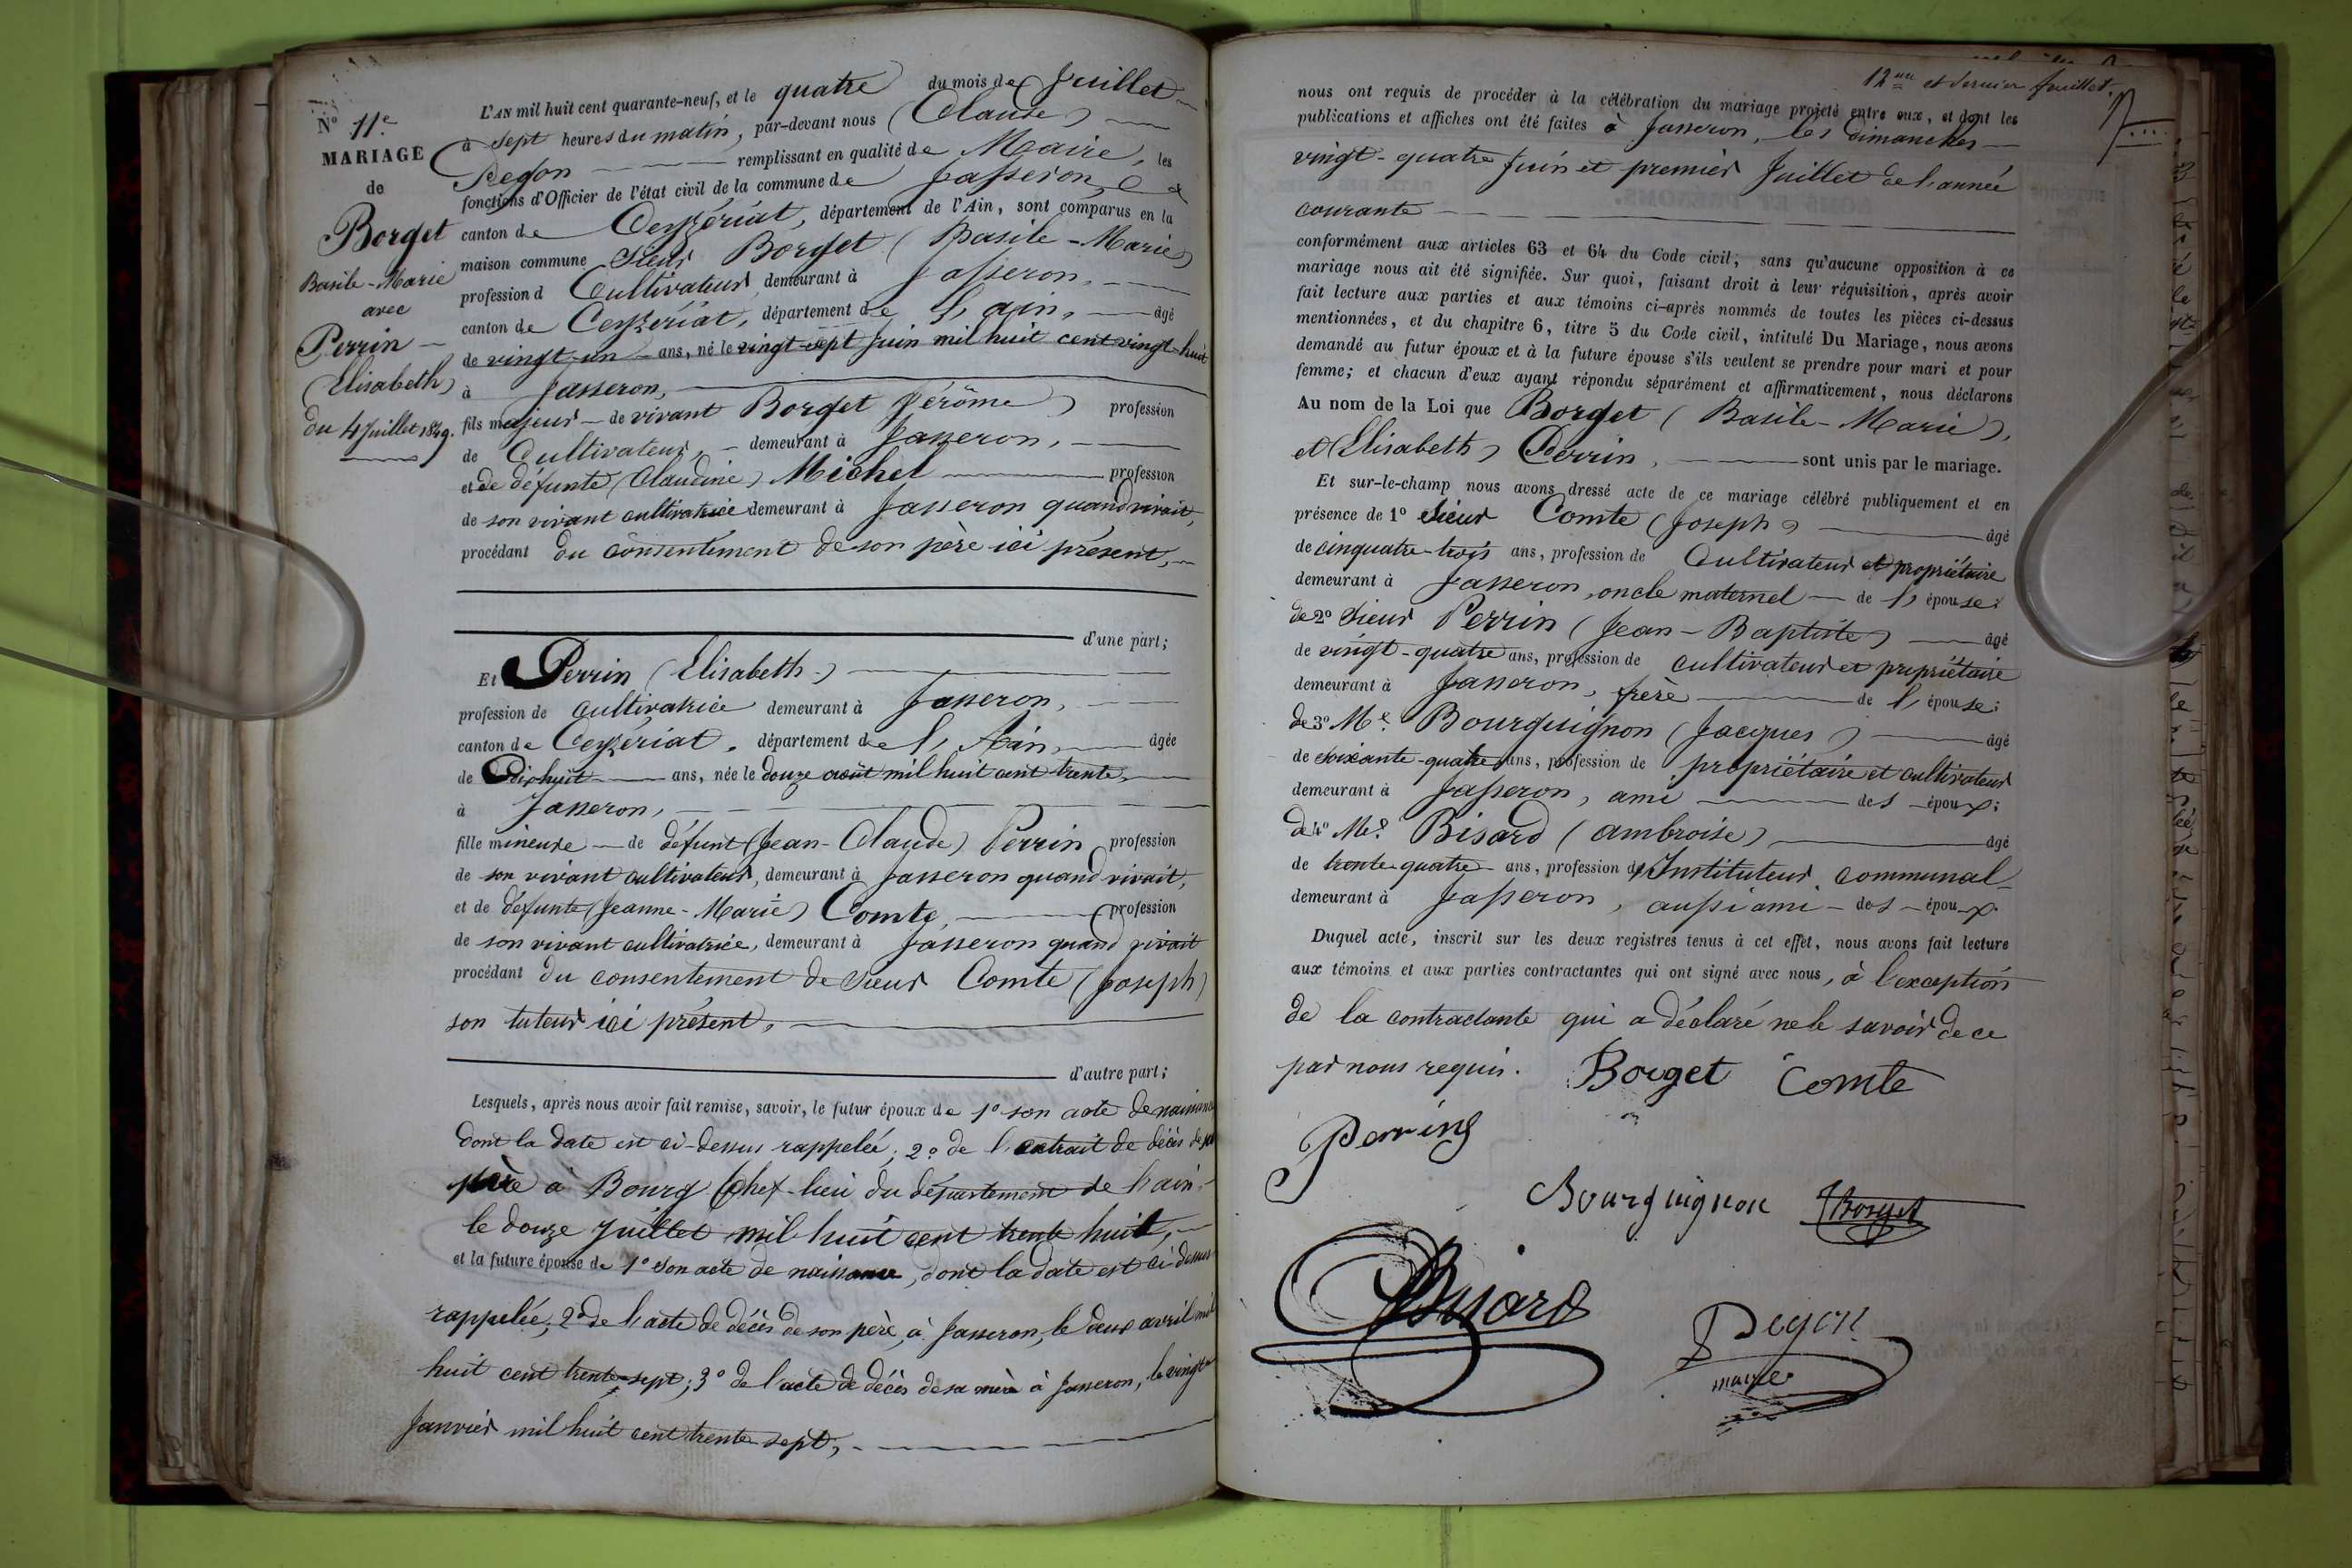 N° 11e
MARIAGE
de
Borget
Basile-Marie
avec
Perrin
(Elisabeth)
du 4 Juillet 1849.
L'AN mil huit cent quarante-neuf, et le quatre du mois de Juillet
à sept heures du matin, par-devant nous (Claude)
Pegon remplissant en qualité de Maire, les
fonctions d'Officier de l'état civil de la commune de Jasseron,
canton de Ceyzériat, département de l'Ain, sont comparus en la
maison commune Sieur Borget (Basile-Marie)
profession d Cultivateur demeurant à Jasseron,
canton de Ceyzériat, département de l'ain, âgé
de vingt-un ans, né le vingt-sept Juin mil huit cent vingt-huit
à Jasseron,
fils majeur de vivant Borget Jérôme) profession
de Cultivateur, demeurant à Jasseron,
et de défunte (Claudine) Michel profession
de son vivant cultivatrice demeurant à Jasseron quand vivait,
procédant du consentement de son père ici présent,
d'une part;
Et Perrin (Elisabeth)
profession de cultivatrice demeurant à Jasseron,
canton de Ceyzériat, département de l'Ain, âgée
de Dix huit ans, née le douze août mil huit cent trente,
à Jasseron,
fille mineure de défunt (Jean-Claude) Perrin profession
de son vivant cultivateur, demeurant à Jasseron quand vivait,
et de défunte (Jeanne-Marie) Comte, profession
de son vivant cultivatrice, demeurant à Jasseron quand vivait
procédant du consentement de Sieur Comte (Joseph)
son tuteur ici présent,
d'autre part;
Lesquels, après nous avoir fait remise, savoir, le futur époux de 1° son acte de naissance
dont la date est ci-dessus rappelée; 2° de l'extrait de décès de sa
mère à Bourg Chef-lieu du département de l'ain,
le douze Juillet mil huit cent trente huit,
et la future épouse de 1° son acte de naissance, dont la date est ci-dessus
rappelée; 2° de l'acte de décès de son père, à Jasseron, le deux avril mil
huit cent trente-sept; 3° de l'acte de décès de sa mère à Jasseron, le vingt
Janvier mil huit cent trente sept,
12me et dernier feuillet.
nous ont requis de procéder à la célébration du mariage projeté entre eux, et dont les
publications et affiches ont été faites à Jasseron, les dimanches
vingt-quatre Juin et premier Juillet de l'année
courante
conformément aux articles 63 et 64 du Code civil; sans qu'aucune opposition à ce
mariage nous ait été signifiée. Sur quoi, faisant droit à leur réquisition, après avoir
fait lecture aux parties et aux témoins ci-après nommés de toutes les pièces ci-dessus
mentionnées, et du chapitre 6, titre 5 du Code civil, intitulé Du Mariage, nous avons
demandé au futur époux et à la future épouse s'ils veulent se prendre pour mari et pour
femme; et chacun d'eux ayant répondu séparément et affirmativement, nous déclarons
Au nom de la Loi que Borget (Basile-Marie),
et (Elisabeth) Perrin, sont unis par le mariage.
Et sur-le-champ nous avons dressé acte de ce mariage célébré publiquement et en
présence de 1° Sieur Comte (Joseph) âgé
de cinquate-trois ans, profession de Cultivateur et propriétaire
demeurant à Jasseron, oncle maternel de l'épouse;
de 2° Sieur Perrin (Jean-Baptiste) âgé
de vingt-quatre ans, profession de cultivateur et propriétaire
demeurant à Jasseron, frère de l'épouse;
de 3° Me. Bourguignon (Jacques) âgé
de soixante-quatre ans, profession de propriétaire et cultivateur
demeurant à Jasseron, ami des époux;
de 4° Me. Bisard (ambroise) âgé
de trente-quatre ans, profession d'Instituteur communal
demeurant à Jasseron, aussi ami des époux.
Duquel acte, inscrit sur les deux registres tenus à cet effet, nous avons fait lecture
aux témoins et aux parties contractantes qui ont signé avec nous, à l'exception
de la contractante qui a déclaré ne le savoir de ce
par nous requis. Borget Comte
Perring
Bourguignon JBorget
Bisard
Pegon
maire